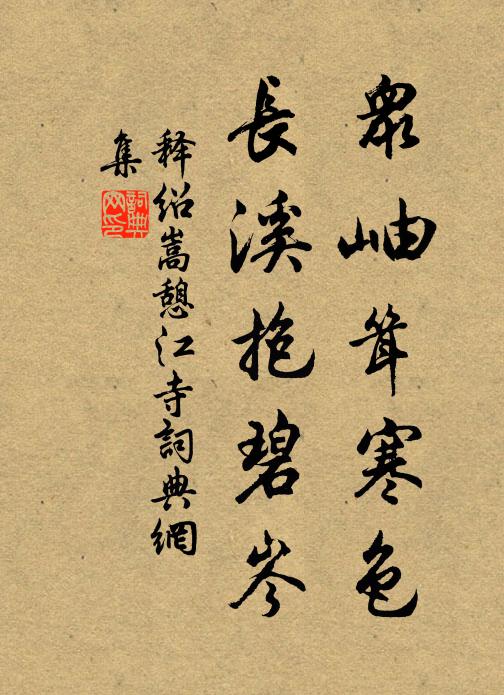 眾岫耸寒色
長溪抱碧岑
释紹嵩憩江寺詞典網
集
詞典
网印